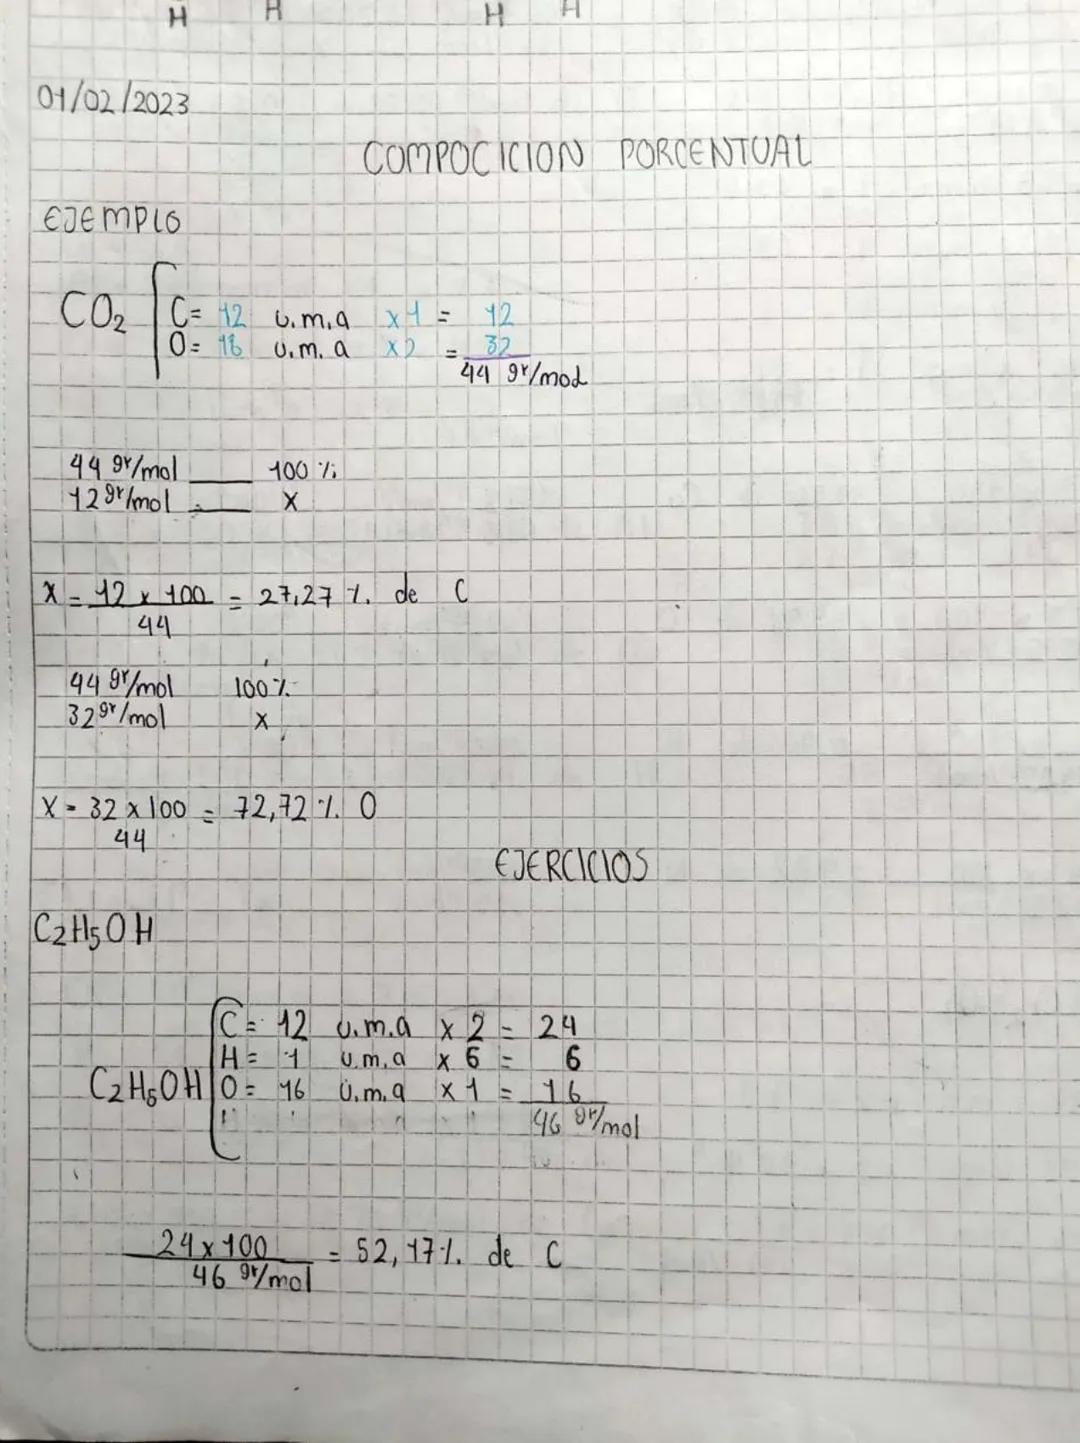 H H H H
01/02/2023
COMPOCICION PORCENTUAL
EJEMPLO
CO2 C= 12 u.m.a x1 = 12
O= 16 u.m.a x2 = 32
44 gr/mol
44 gr/mol ___ 100 %
12 gr/mol ___ X
X = 12 x 100 = 27,27 %. de C
44
44 gr/mol 100%
32 gr/mol X
X = 32 x 100 = 72,72 %. O
44
EJERCICIOS
C2H5OH
C= 12 u.m.a x 2 = 24
H= 1 u.m.a x 6 = 6
C2H5OH O= 16 u.m.a x 1 = 16
46 gr/mol
24 x 100 = 52,17%. de C
46 gr/mol